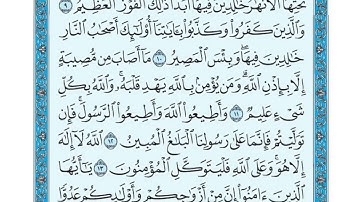 تَحْتِهَا ٱلْأَنْهَٰرُ خَٰلِدِينَ فِيهَآ أَبَدًا ذَٰلِكَ ٱلْفَوْزُ ٱلْعَظِيمُ ٩
وَٱلَّذِينَ كَفَرُوا۟ وَكَذَّبُوا۟ بِـَٔايَٰتِنَآ أُو۟لَٰٓئِكَ أَصْحَٰبُ ٱلنَّارِ
خَٰلِدِينَ فِيهَا وَبِئْسَ ٱلْمَصِيرُ ١٠ مَآ أَصَابَ مِن مُّصِيبَةٍ
إِلَّا بِإِذْنِ ٱللَّهِ وَمَن يُؤْمِنۢ بِٱللَّهِ يَهْدِ قَلْبَهُۥ وَٱللَّهُ بِكُلِّ
شَىْءٍ عَلِيمٌ ١١ وَأَطِيعُوا۟ ٱللَّهَ وَأَطِيعُوا۟ ٱلرَّسُولَ فَإِن
تَوَلَّيْتُمْ فَإِنَّمَا عَلَىٰ رَسُولِنَا ٱلْبَلَٰغُ ٱلْمُبِينُ ١٢ ٱللَّهُ لَآ إِلَٰهَ
إِلَّا هُوَ وَعَلَى ٱللَّهِ فَلْيَتَوَكَّلِ ٱلْمُؤْمِنُونَ ١٣ يَٰٓأَيُّهَا
ٱلَّذِينَ ءَامَنُوٓا۟ إِنَّ مِنْ أَزْوَٰجِكُمْ وَأَوْلَٰدِكُمْ عَدُوًّا